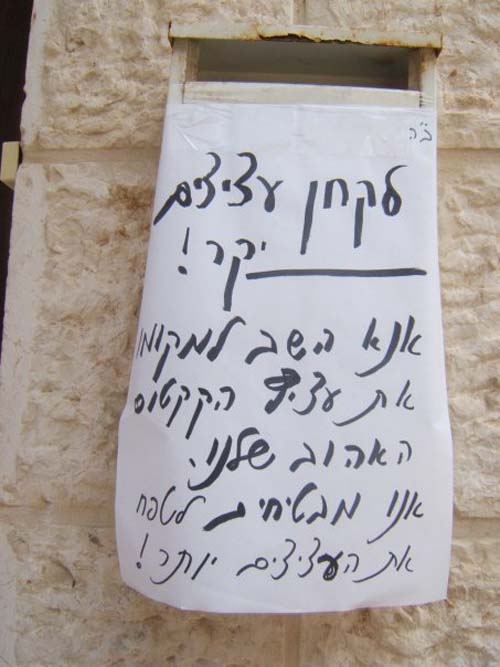 ב"ה
לקחן עציצים
יקר!
אנא השב למקומו
את עציץ הקקטוס
האהוב שלנו.
אנו מבטיחים לטפח
את העציצים יותר!